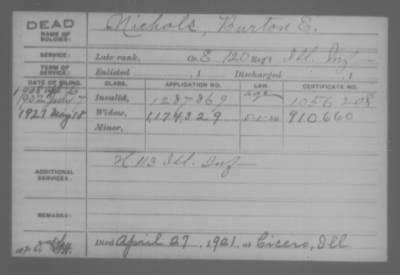 DEAD
NAME OF SOLDIER:
Nichols, Burton E.
SERVICE:
Late rank, Co. E, 120 Reg't Ill. Inf
TERM OF SERVICE:
Enlisted , 1 Discharged , 1
DATE OF FILING. CLASS. APPLICATION NO. LAW. CERTIFICATE NO.
Invalid, 1287869 age
1921 May 18 Widow, 1174329 5-1-20 910660
Minor,
ADDITIONAL SERVICES:
H 113 Ill. Inf
REMARKS:
Died April 27, 1921, at Cicero, Ill